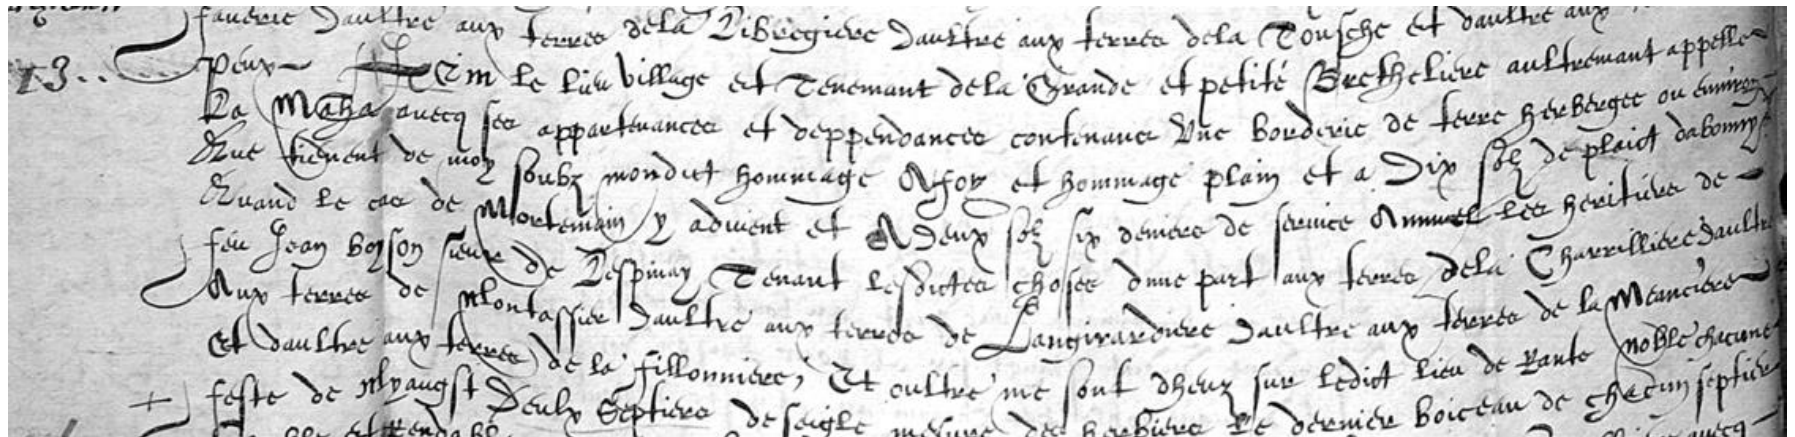 daultre aux terres dela Ribregiere daultre aux terres dela Tousche et daultre aux
13.. peux Item le lieu village et Tenemant dela Grande et petite Bretheliere aultremant appelle
La Maha avecq ses appartenances et deppendances contenant Une borderie de terre herbergee ou environ
Que tienent de moy soubz mondict hommage A foy et hommage plain et a Dix solz de plaict
Quand le cas de Mortemain y advient et A Deux solz six deniers de service Annuel les heritiers de
feu Jean boyson sieur de Lespinay Tenant lesdictes choses dune part aux terres dela Charrilliere daultre
Aux terres de Montassier daultre aux terres de Langirardiere daultre aux terres de la Meanciere
Et daultre aux terres de la fillonniere, Et oultre me sont dheuz sur ledict lieu de Rante noble chacune
feste de Myaugst Deulx Septiers de seigle mesure des herbiers le dernier boiceau de chacun septier